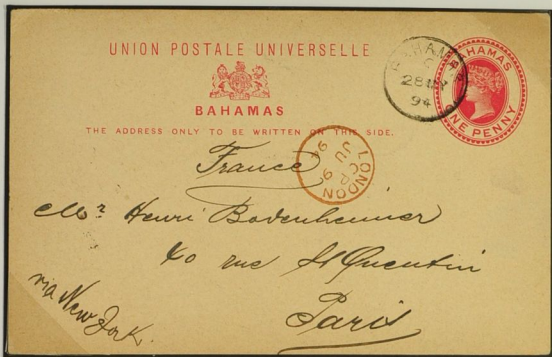 UNION POSTALE UNIVERSELLE
BAHAMAS
THE ADDRESS ONLY TO BE WRITTEN ON THIS SIDE.
BAHAMAS
C
28 MY
94
BAHAMAS
ONE PENNY
LONDON
CR
JU 9
94
France
Mr. Henri Bodenheimer
40 rue St Quentin
Paris
via New York.